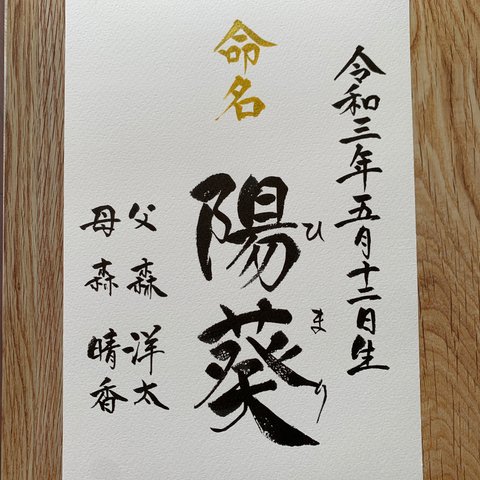 令和三年五月十二日生
命名
陽葵
ひまり
父 森 洋太
母 森 晴香